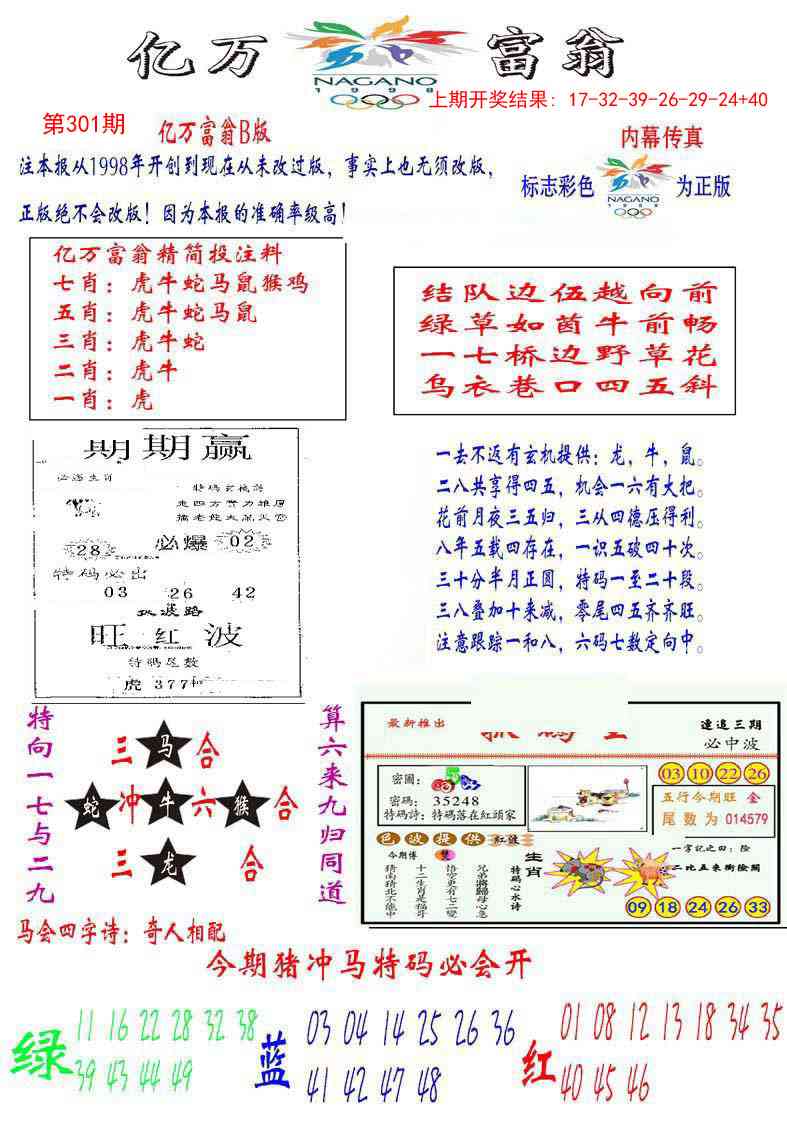 亿万
富翁
NAGANO
1998
上期开奖结果: 17-32-39-26-29-24+40
第301期
亿万富翁B版
内幕传真
注本报从1998年开创到现在从未改过版，事实上也无须改版，
正版绝不会改版！因为本报的准确率级高！
标志彩色
NAGANO
1998
为正版
亿万富翁精简投注料
七肖：虎牛蛇马鼠猴鸡
五肖：虎牛蛇马鼠
三肖：虎牛蛇
二肖：虎牛
一肖：虎
结队边伍越向前
绿草如茵牛前畅
一七桥边野草花
乌衣巷口四五斜
期期赢
必选生肖
28
必爆
02
特码必出
03 26 42
旺红波
特碼尾数
虎 377
一去不返有玄机提供：龙，牛，鼠。
二八共享得四五，机会一六有大把。
花前月夜三五归，三从四德压得利。
八年五载四存在，一识五破四十次。
三十分半月正圆，特码一至二十段。
三八叠加十来减，零尾四五齐齐旺。
注意跟踪一和八，六码七数定向中。
特向一七与二九
三 马 合
蛇 冲 牛 六 猴 合
三 龙 合
算六来九归同道
最新推出
速追三期
必中波
密圖：
密碼： 35248
特碼詩：特碼落在紅頭家
03 10 22 26
五行今期旺 金
尾数为 014579
色波提供
紅波
今期博
雙
猜南猜北不能中
十二生肖是福哥
悟空更有七二變
兄弟將歸母心急
特碼心水诗
生肖
一字記之曰：险
二比五来衝險關
09 18 24 26 33
马会四字诗：奇人相配
今期猪冲马特码必会开
绿
11 16 22 28 32 38
39 43 44 49
蓝
03 04 14 25 26 36
41 42 47 48
红
01 08 12 13 18 34 35
40 45 46